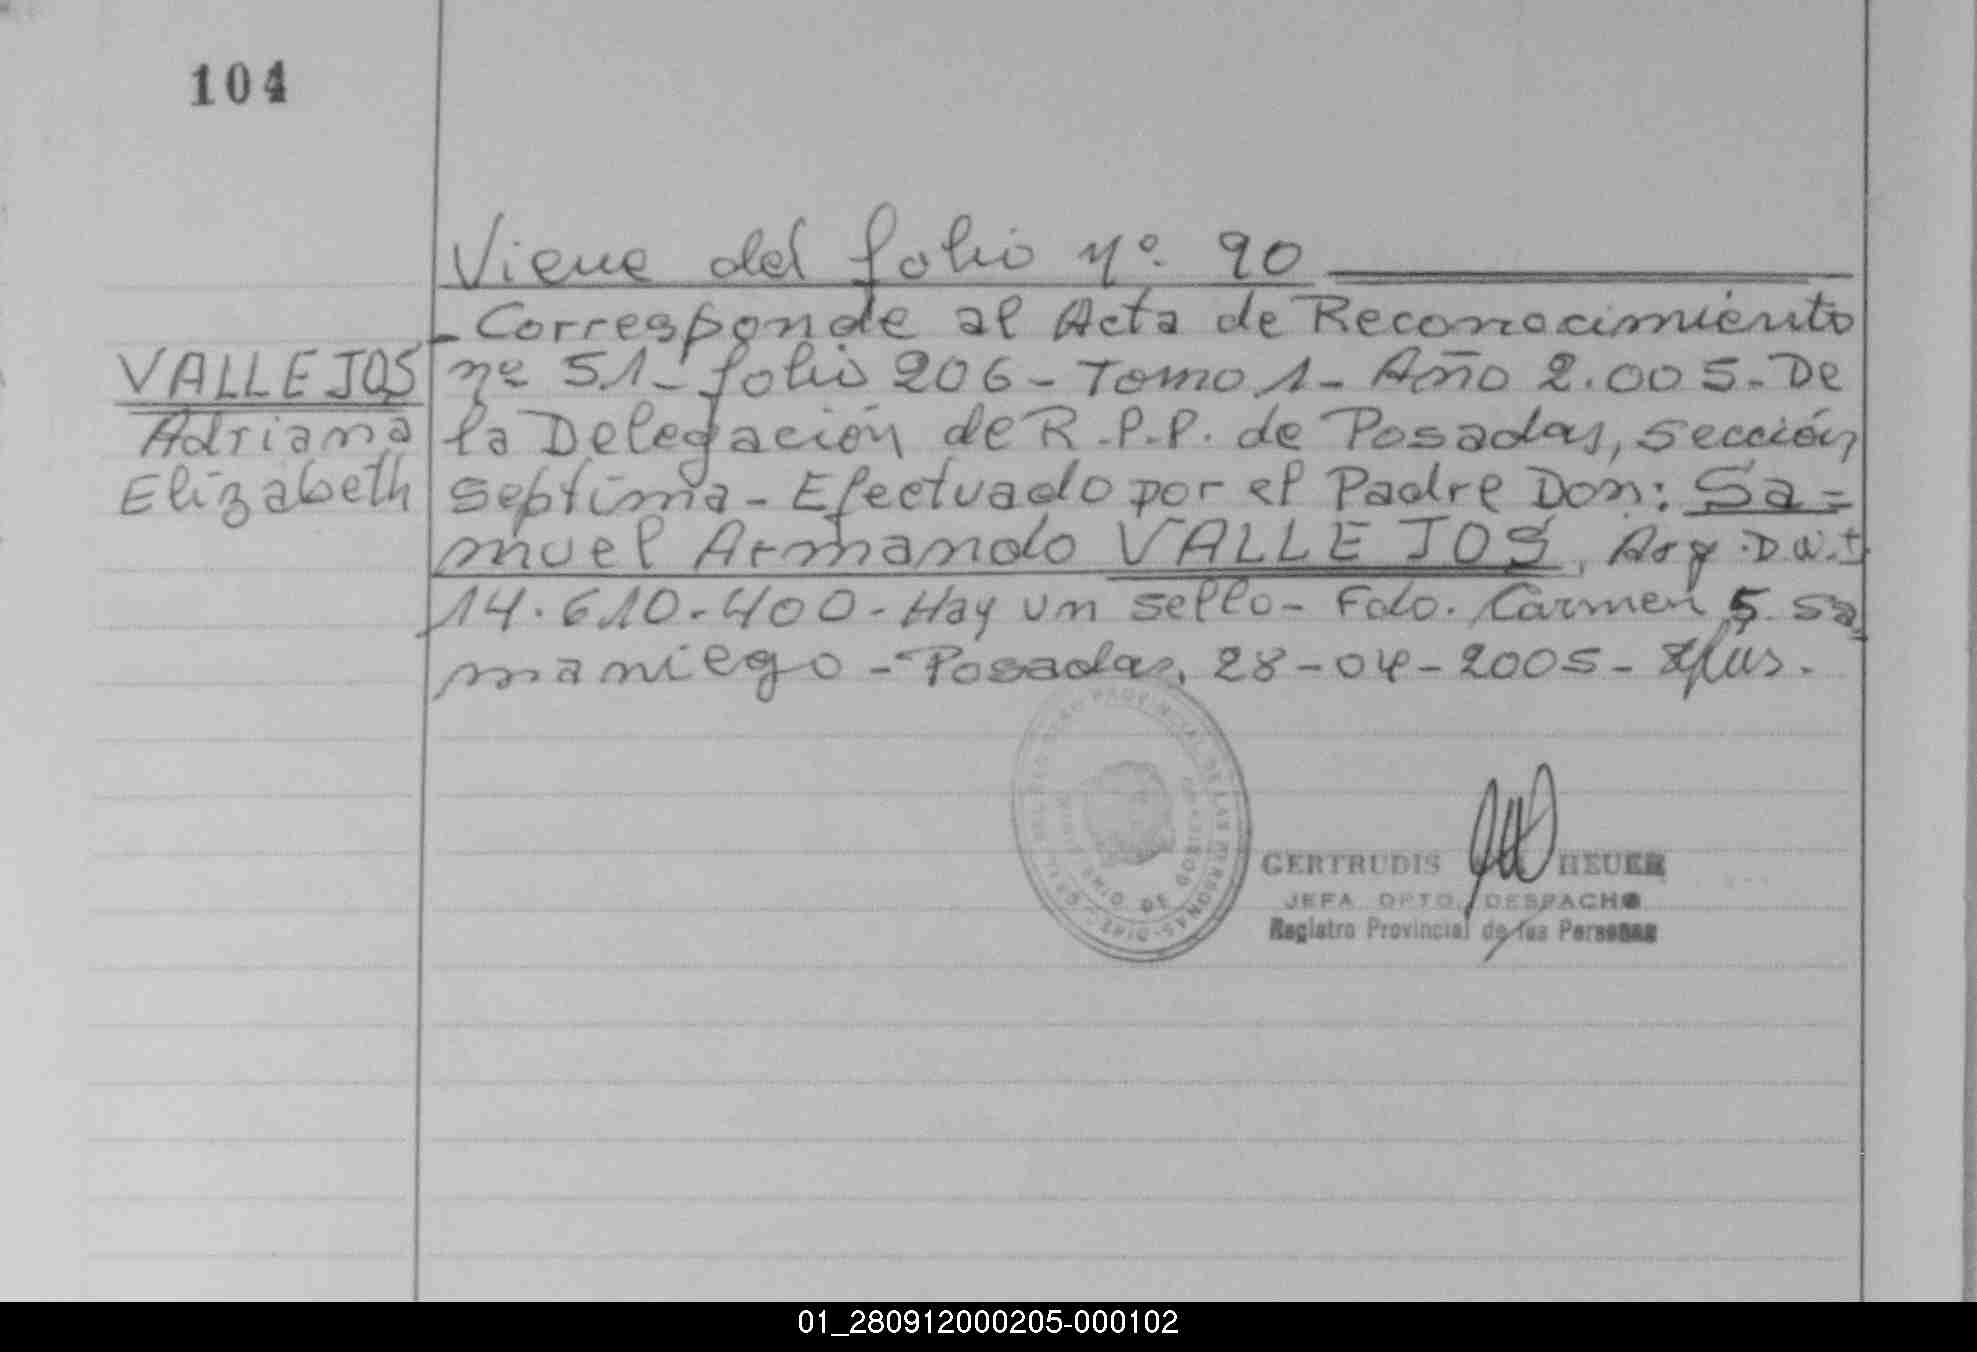 104
Viene del folio nº. 90
- Corresponde al Acta de Reconocimiento
VALLEJOS
Adriana
Elizabeth
nº 51 - folio 206 - Tomo 1 - Año 2.005 - De
la Delegación de R.P.P. de Posadas, Sección
Septima - Efectuado por el Padre Don: Sa=
muel Armando VALLEJOS, Arg. D.N.I
14.610.400 - Hay un sello - Fdo. Carmen S. Sa
maniego - Posadas, 28-04-2005 -
PROVINCIAL DE LAS PERSONAS
GERTRUDIS HEUER
JEFA DPTO. DESPACHO
Registro Provincial de las Personas
01_280912000205-000102